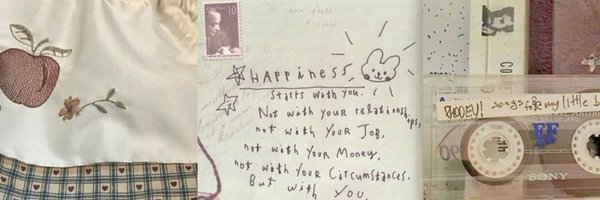 10
HAPPINESS
starts with you.
Not with your relationships,
not with your Job,
not with your Money,
not with your Circumstances.
But with you.
PHOOEY! songs for my little
90
SONY